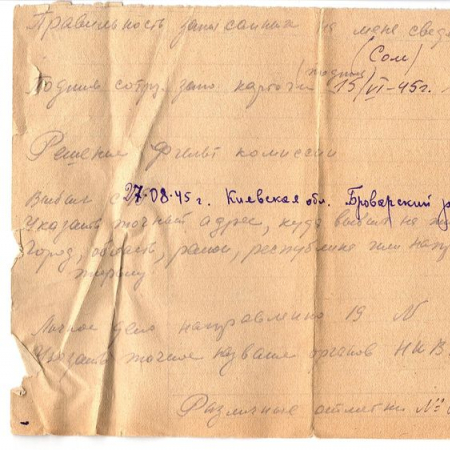 Правильность записанных на мене свед
(Сом)
(подпис)
Подпись сотру. запо. карточки 15/VI-45г.
Решение фильт комиссии
Выбыл с 27.08.45г. Киевская обл. Броварский р
Указать точный адрес, куда выбыл на жи
город, область, район, республике или нац
Личное дело направленно 19 N
Указать точное название органов НКВ
Различные отметки №